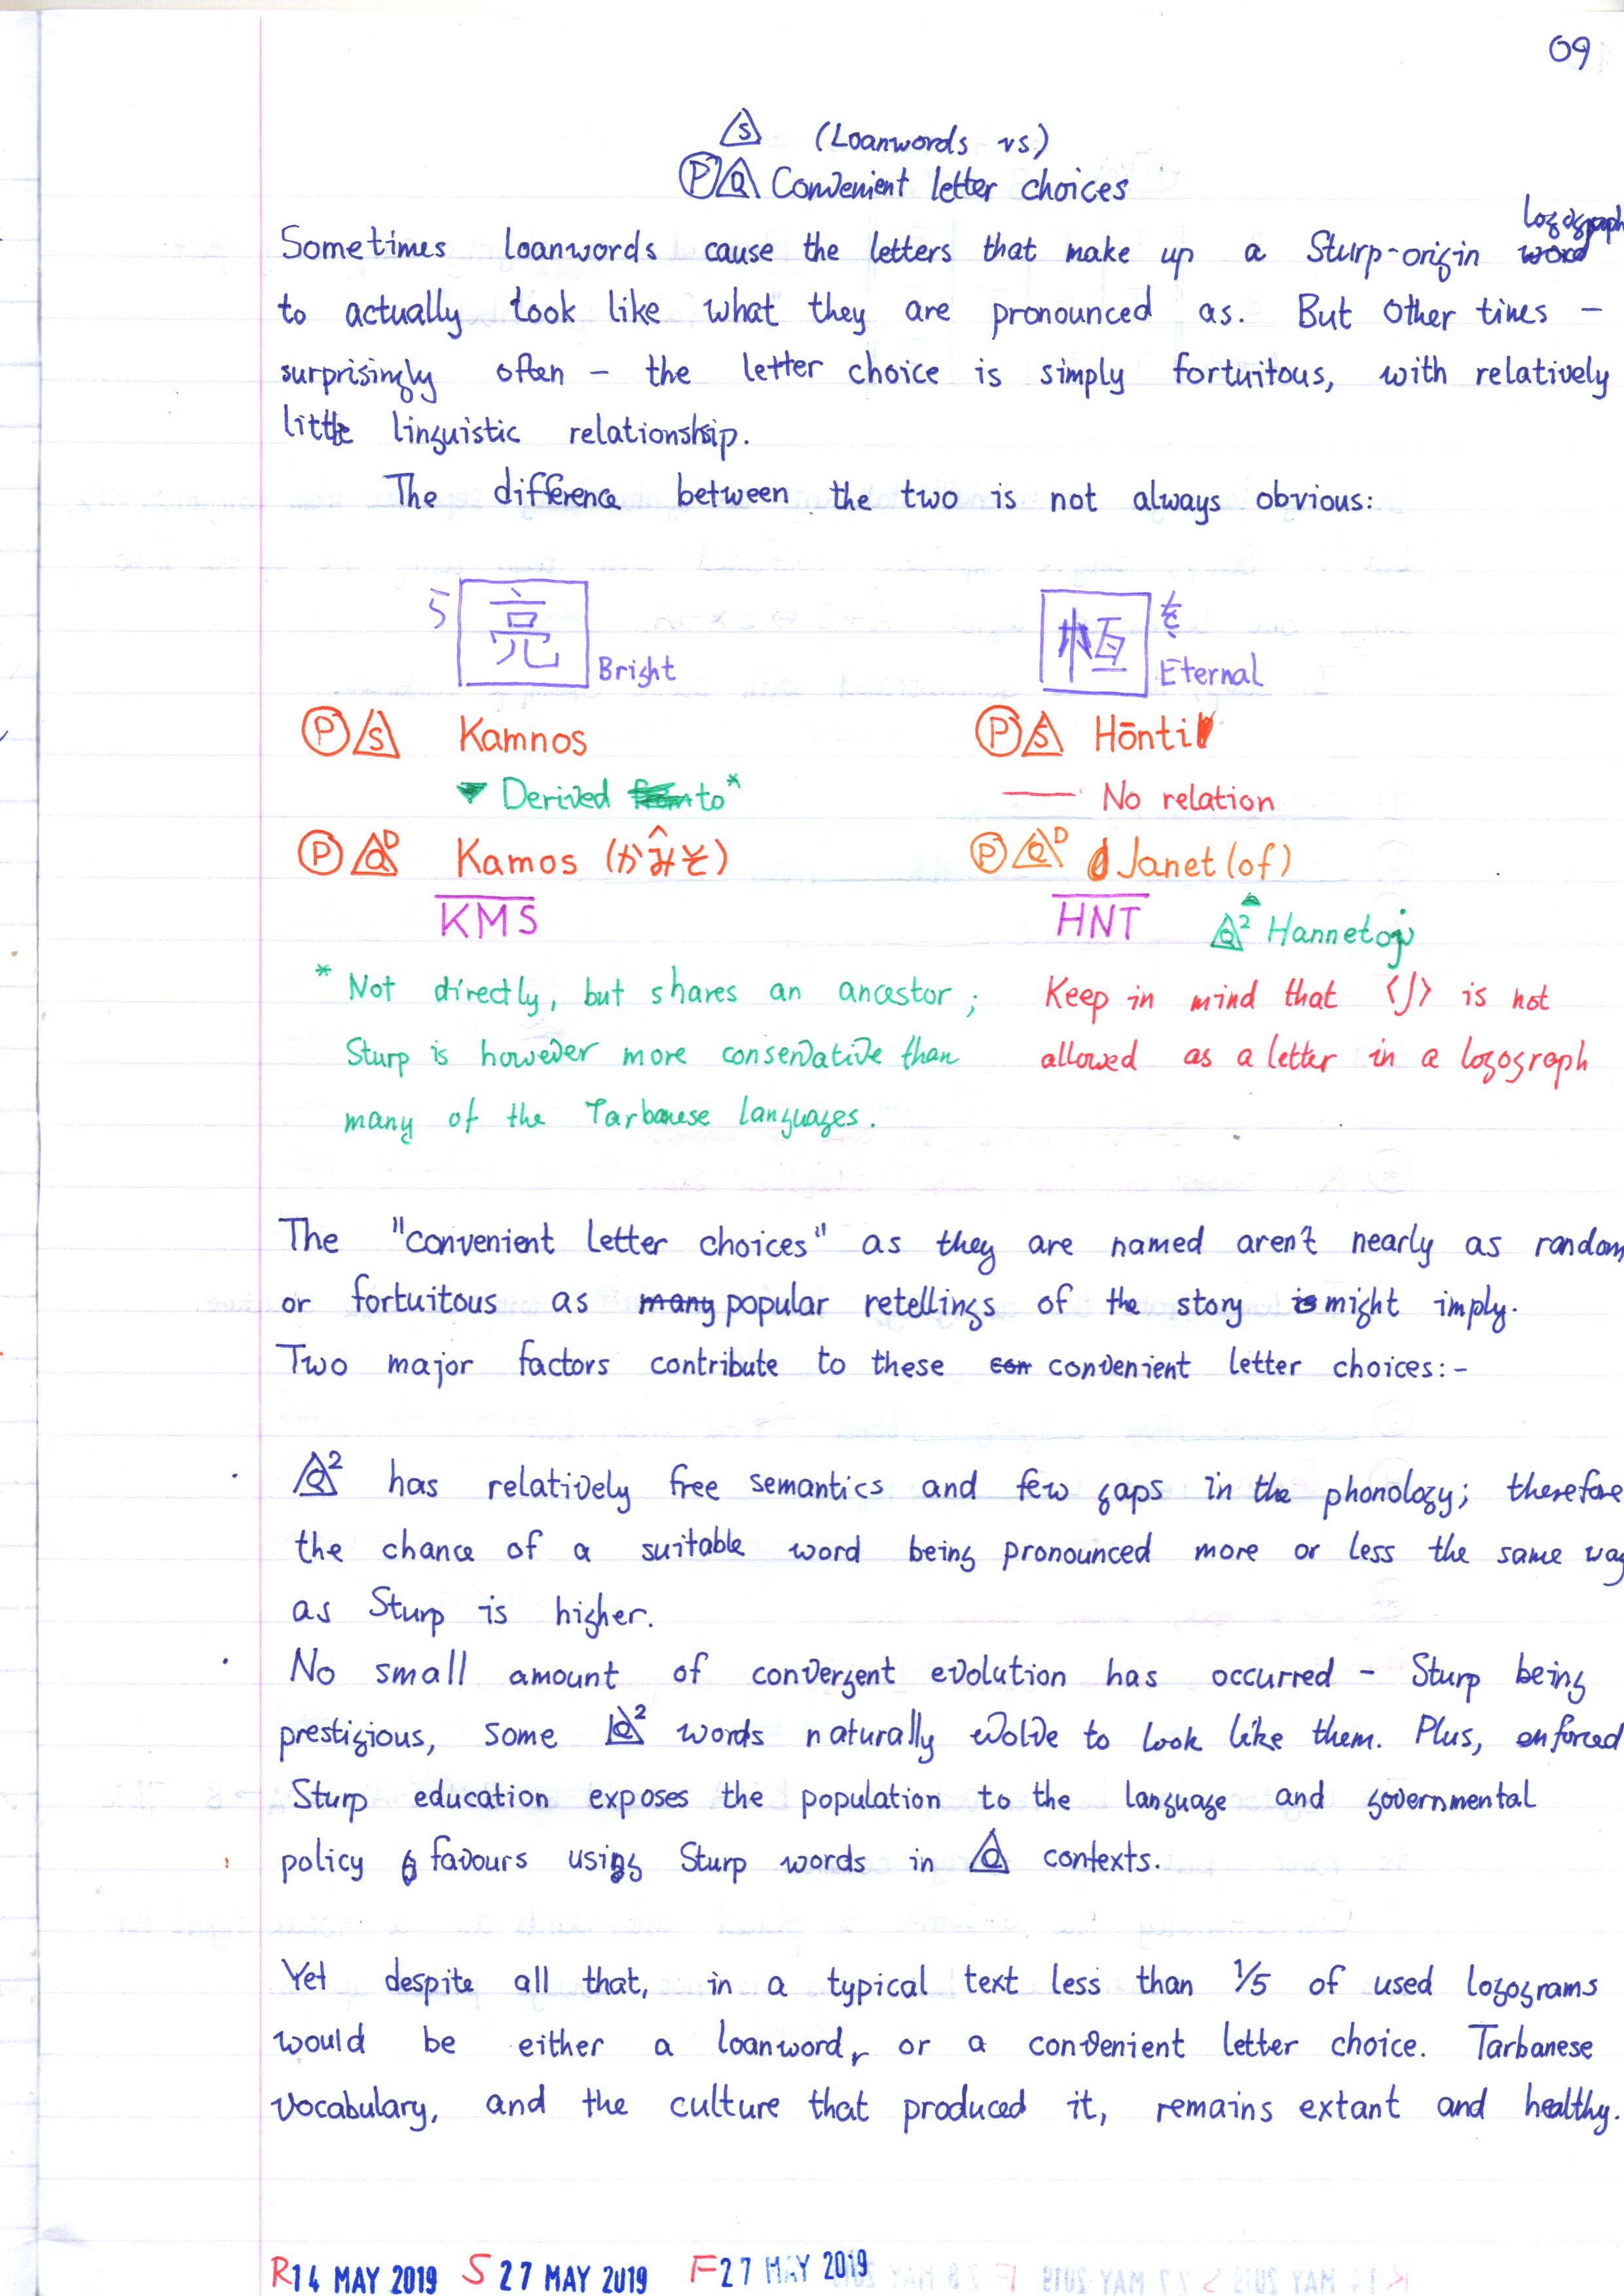 09
S (Loanwords vs)
P Q Convenient letter choices
logograph
Sometimes loanwords cause the letters that make up a Sturp-origin word
to actually look like what they are pronounced as. But other times –
surprisingly often – the letter choice is simply fortuitous, with relatively
little linguistic relationship.
The difference between the two is not always obvious:
亮 Bright
恒 Eternal
P S Kamnos
P S Hōnti
Derived from to*
No relation
P Q D Kamos (かみそ)
P Q D Janet (of)
KMS
HNT Q² Hannetoj
* Not directly, but shares an ancestor;
Sturp is however more conservative than
many of the Tarbanese languages.
Keep in mind that ⟨J⟩ is not
allowed as a letter in a logograph
The "convenient letter choices" as they are named aren't nearly as random
or fortuitous as many popular retellings of the story is might imply.
Two major factors contribute to these con convenient letter choices:-
· Q² has relatively free semantics and few gaps in the phonology; therefore
the chance of a suitable word being pronounced more or less the same way
as Sturp is higher.
· No small amount of convergent evolution has occurred – Sturp being
prestigious, some Q² words naturally evolve to look like them. Plus, enforced
Sturp education exposes the population to the language and governmental
policy favours using Sturp words in Q contexts.
Yet despite all that, in a typical text less than 1/5 of used logograms
would be either a loanword, or a convenient letter choice. Tarbanese
vocabulary, and the culture that produced it, remains extant and healthy.
R14 MAY 2019 S 27 MAY 2019 F27 MAY 2019